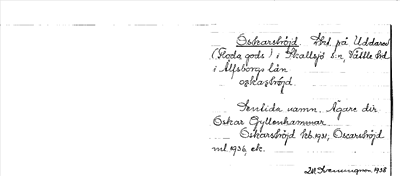 Oskarshöjd. Lht. på Uddared
(Floda gods) i Skallsjö s:n, Vättle hd
i Älfsborgs län
oskashöjd.
Sentida namn. Ägare dir.
Oskar Gyllenhammar
Oskarshöjd kb. 1931, Oscarshöjd
ml. 1936, ek.
1938